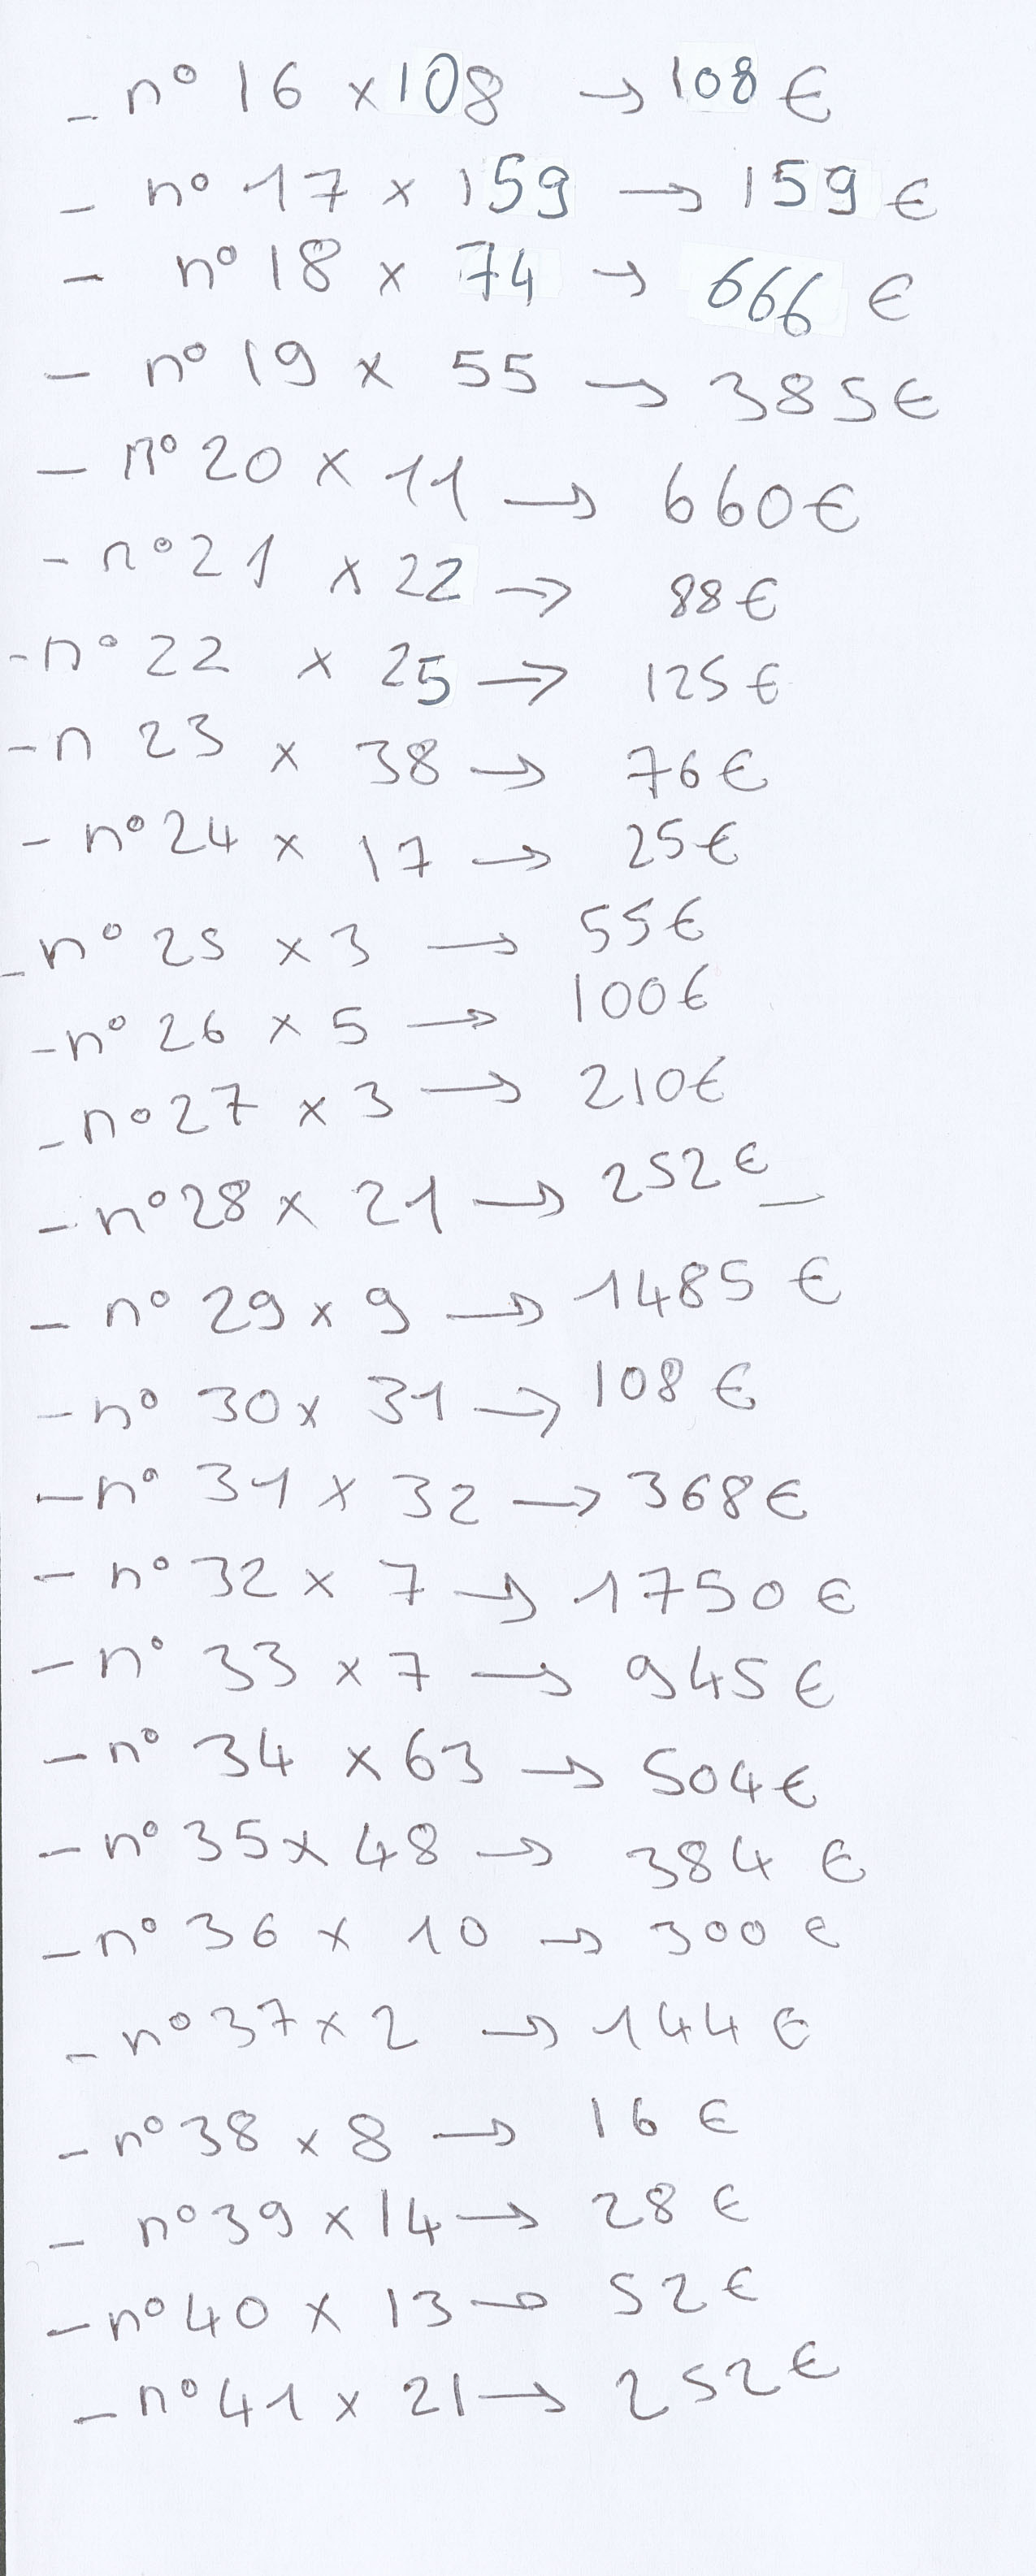 - n° 16 x 108 → 108 €
- n° 17 x 159 → 159 €
- n° 18 x 74 → 666 €
- n° 19 x 55 → 385 €
- n° 20 x 11 → 660 €
- n° 21 x 22 → 88 €
- n° 22 x 25 → 125 €
- n 23 x 38 → 76 €
- n° 24 x 17 → 25 €
- n° 25 x 3 → 55 €
- n° 26 x 5 → 100 €
- n° 27 x 3 → 210 €
- n° 28 x 21 → 252 € _
- n° 29 x 9 → 1485 €
- n° 30 x 31 → 108 €
- n° 31 x 32 → 368 €
- n° 32 x 7 → 1750 €
- n° 33 x 7 → 945 €
- n° 34 x 63 → 504 €
- n° 35 x 48 → 384 €
- n° 36 x 10 → 300 €
- n° 37 x 2 → 144 €
- n° 38 x 8 → 16 €
- n° 39 x 14 → 28 €
- n° 40 x 13 → 52 €
- n° 41 x 21 → 252 €